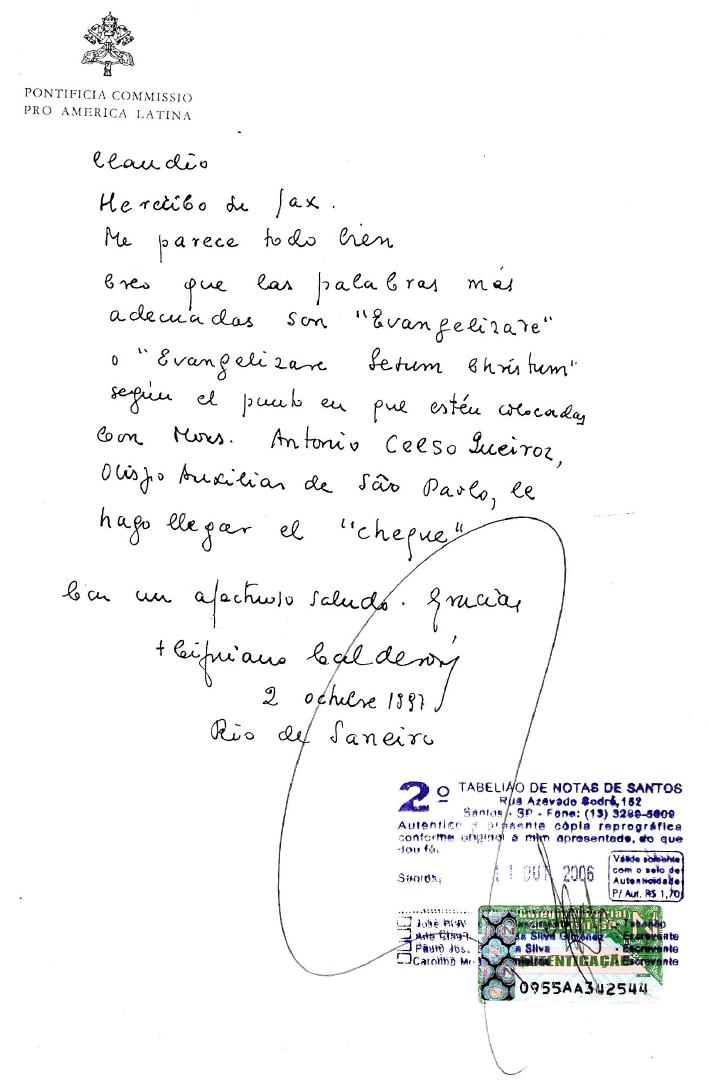 PONTIFICIA COMMISSIO
PRO AMERICA LATINA
Claudio
He recibo su fax.
Me parece todo bien
Creo que las palabras más
adecuadas son "Evangelizare"
o "Evangelizare Iesum Christum"
según el punto en que estén colocadas
Con Mons. Antonio Celso Queiroz,
Obispo Auxiliar de São Paolo, le
hago llegar el "cheque"
Con un afectuoso saludo. Gracias
+ Cipriano Calderón
2 octubre 1997
Rio de Janeiro
2º TABELIÃO DE NOTAS DE SANTOS
Rua Azevedo Sodré, 152
Santos - SP - Fone: (13) 3289-5009
Autentico a presente cópia reprográfica
conforme original a mim apresentado, do que
dou fé.
Santos, 11 OUT 2006
Válido somente
com o selo de
Autenticidade
P/ Aut. R$ 1,70
José - Tabelião
da Silva Gimenez - Escrevente
Paulo da Silva - Escrevente
Carolina - Escrevente
AUTENTICAÇÃO
0955AA342544